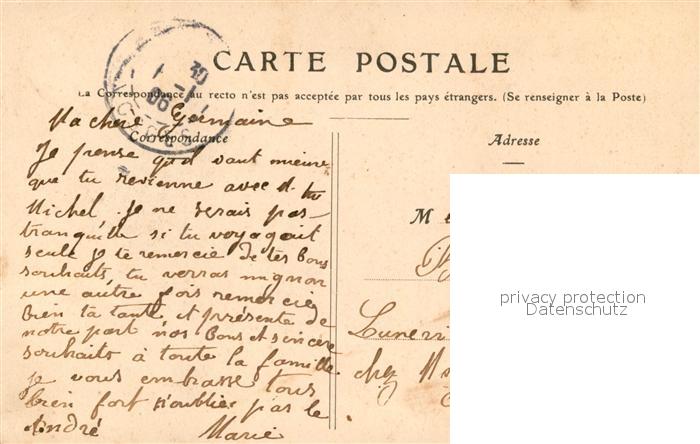 CARTE POSTALE
La Correspondance au recto n'est pas acceptée par tous les pays étrangers. (Se renseigner à la Poste)
Correspondance
Adresse
Ma chere Germaine
Je pense qu'il vaut mieux
que tu revienne avec
Michel. Je ne serais pas
tranquille si tu voyagait
seule je te remercie de tes bons
souhaits, tu verras mignon
une autre fois remercie
bien ta tante et présente de
notre part nos bons et sincère
souhaits à toute la famille.
je vous embrasse tous
bien fort n'oublie pas le
André
Marie
M
Lunevi
chez
privacy protection
Datenschutz